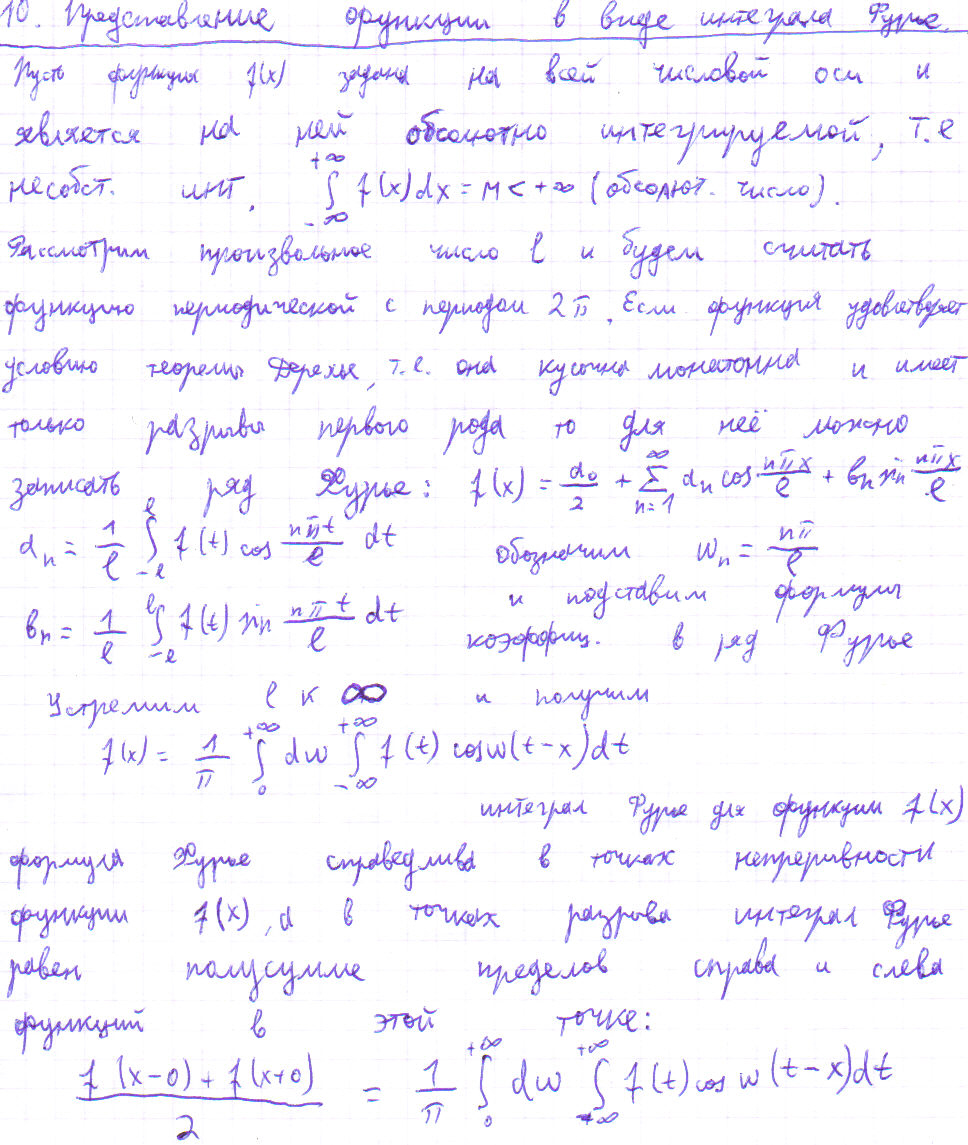 10. Представление функции в виде интеграла Фурье.
Пусть функция f(x) задана на всей числовой оси и
является на ней абсолютно интегрируемой, т.е
несобст. инт. ∫_{-∞}^{+∞} f(x)dx = M < +∞ (абсолют. число).
Рассмотрим произвольное число l и будем считать
функцию периодической с периодом 2π. Если функция удовлетворяет
условию теоремы Дерехле, т.е. она кусочна монатонна и имеет
только разрывы первого рода то для неё можно
записать ряд Фурье: f(x) = a₀/2 + ∑_{n=1}^{∞} aₙ cos nπx/l + bₙ sin nπx/l
aₙ = 1/l ∫_{-l}^{l} f(t) cos nπt/l dt обозначим wₙ = nπ/l
bₙ = 1/l ∫_{-l}^{l} f(t) sin nπt/l dt и подставим формулы
коэффиц. в ряд Фурье
Устремим l к ∞ и получим
f(x) = 1/π ∫_{0}^{+∞} dw ∫_{-∞}^{+∞} f(t) cosw(t-x)dt
интеграл Фурье для функции f(x)
формула Фурье справедлива в точках непрерывности
функции f(x), а в точках разрыва интеграл Фурье
равен полусумме пределов справа и слева
функций в этой точке:
f(x-0) + f(x+0)/2 = 1/π ∫_{0}^{+∞} dw ∫_{-∞}^{+∞} f(t)cos w(t-x)dt